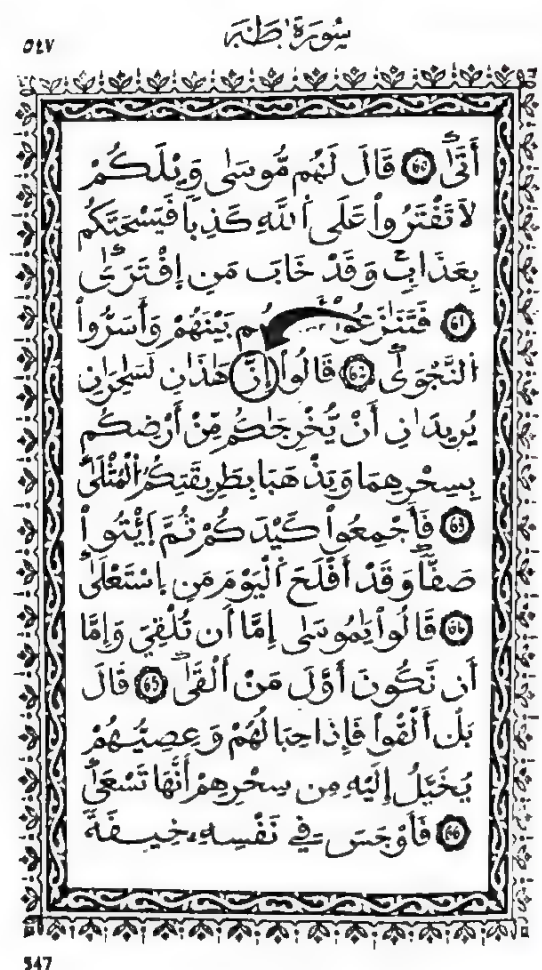 ٥٤٧ سُورَةُ طَهَ
أَتَىٰ 60 قَالَ لَهُم مُّوسَىٰ وَيْلَكُمْ
لَا تَفْتَرُواْ عَلَى اَللَّهِ كَذِباً فَيَسْحَتَكُم
بِعَذَابٖ وَقَدْ خَابَ مَنِ اِفْتَرَىٰ
61 فَتَنَٰزَعُواْ بَيْنَهُمْ وَأَسَرُّواْ
اَلنَّجْوَىٰ 62 قَالُواْ إِنَّ هَٰذَٰنِ لَسَٰحِرَٰنِ
يُرِيدَٰنِ أَنْ يُّخْرِجَٰكُم مِّنْ أَرْضِكُم
بِسِحْرِهِمَا وَيَذْهَبَا بِطَرِيقَتِكُمُ اُلْمُثْلَىٰ
63 فَأَجْمِعُواْ كَيْدَكُمْ ثُمَّ اَئْتُواْ
صَفّاً وَقَدْ أَفْلَحَ اَلْيَوْمَ مَنِ اِسْتَعْلَىٰ
64 قَالُواْ يَٰمُوسَىٰ إِمَّا أَن تُلْقِيَ وَإِمَّا
أَن نَّكُونَ أَوَّلَ مَنْ أَلْقَىٰ 65 قَالَ
بَلْ أَلْقُواْ فَإِذَا حِبَالُهُمْ وَعِصِيُّهُمْ
يُخَيَّلُ إِلَيْهِ مِن سِحْرِهِمْ أَنَّهَا تَسْعَىٰ
66 فَأَوْجَسَ فِي نَفْسِهِۦ خِيفَةً
547